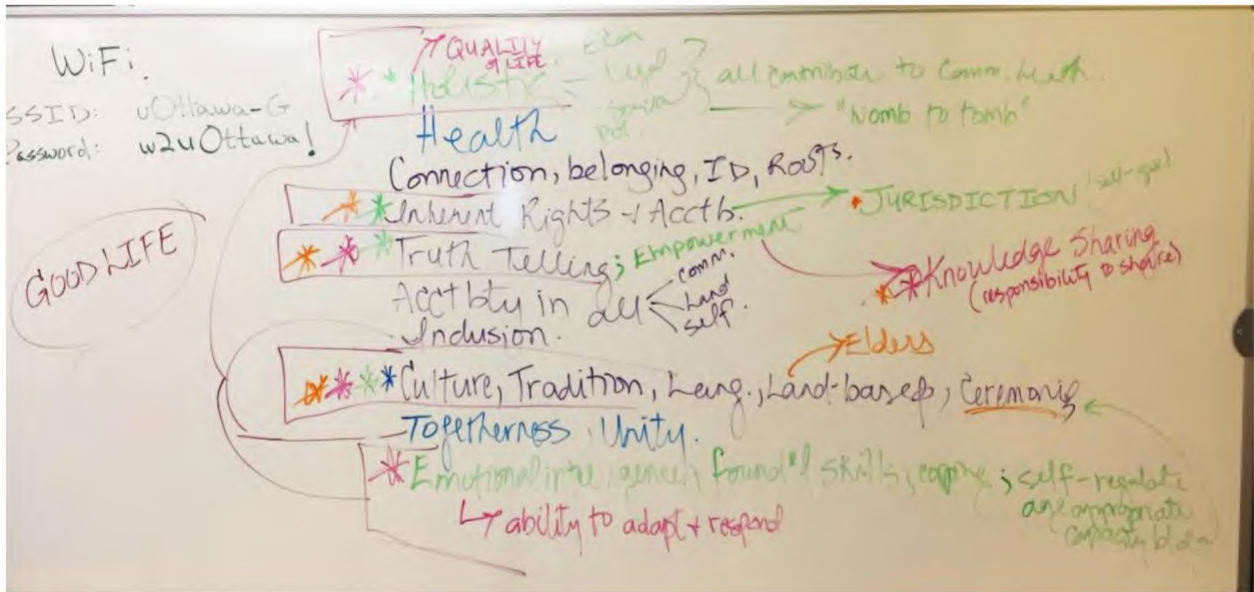 WiFi.
SSID: uOttawa-G
Password: w2uOttawa!
GOOD LIFE
QUALITY
of LIFE
* * Holistic - Econ
Legal
Pol.
all contribute to Comm. health.
"Womb to tomb"
Health
Connection, belonging, ID, Roots.
* * Inherent Rights + Acctb.
* JURISDICTION
* * * Truth Telling; Empowerment
* * Knowledge Sharing
(responsibility to share)
Acctbty in all
comm.
Land
self.
Inclusion.
Elders
* * * * Culture, Tradition, Lang., Land-based, Ceremonies
Togetherness Unity.
* Emotional intelligence, found'l skills, coping; self-regulate
age appropriate
capacity
ability to adapt + respond